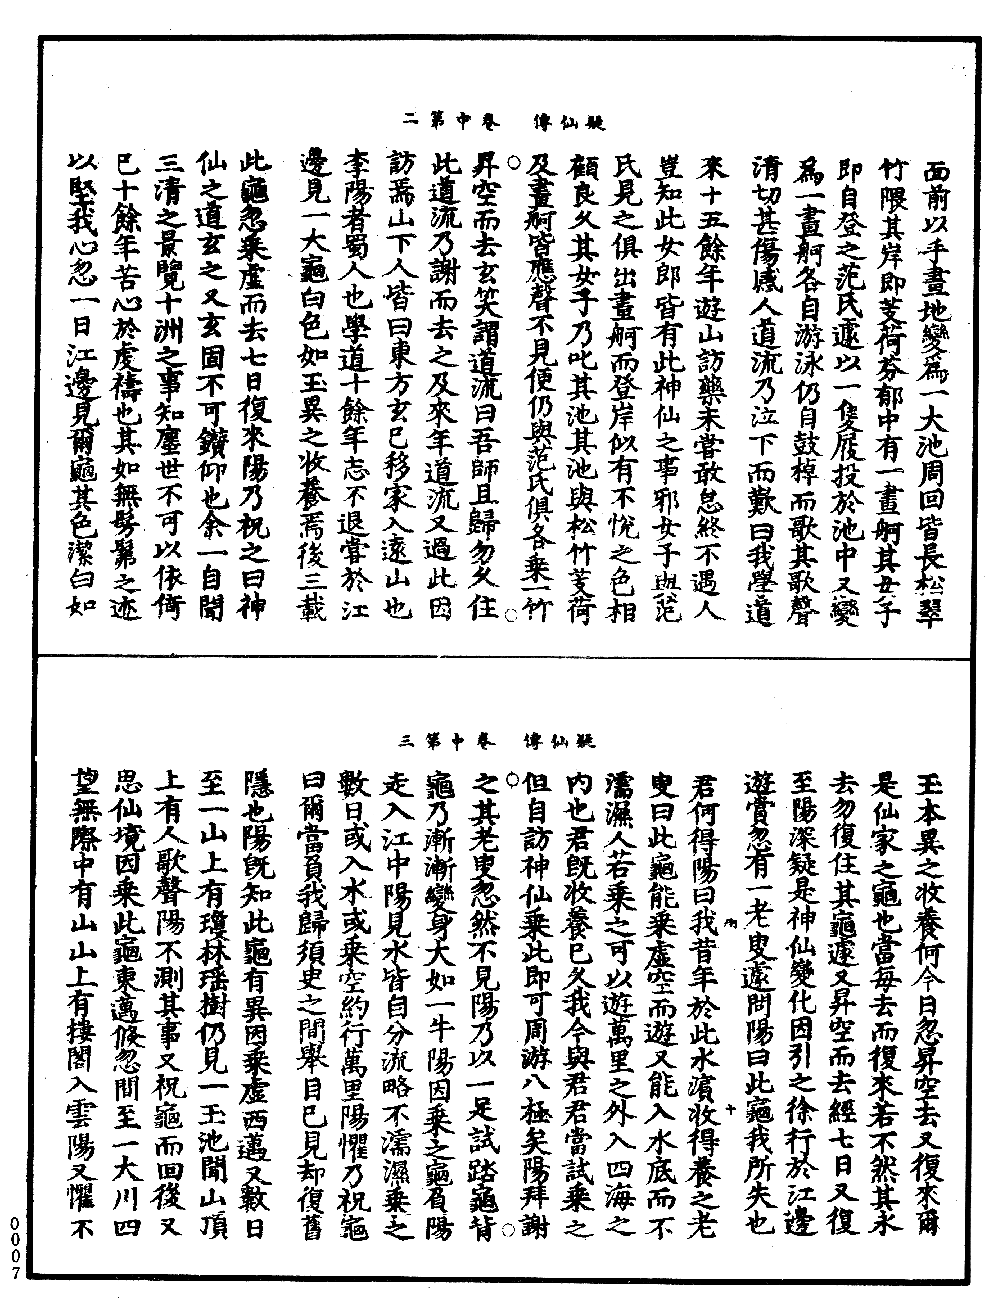 疑仙傳　卷中第二
面前以手畫地變爲一大池周回皆長松翠
竹隈其岸即芰荷芬郁中有一畫舸其女子
即自登之范氏遽以一隻履投於池中又變
爲一畫舸各自游泳仍自鼓棹而歌其歌聲
清切甚傷感人道流乃泣下而歎曰我學道
來十五餘年遊山訪藥未嘗敢怠終不遇人
豈知此女郎皆有此神仙之事邪女子與范
氏見之俱出畫舸而登岸似有不悅之色相
顧良久其女子乃叱其池其池與松竹芰荷
及畫舸皆應聲不見便仍與范氏俱各乘一竹
昇空而去玄笑謂道流曰吾師且歸勿久住
此道流乃謝而去之及來年道流又過此因
訪焉山下人皆曰東方玄已移家入遠山也
李陽者蜀人也學道十餘年志不退嘗於江
邊見一大龜白色如玉異之收養焉後三載
此龜忽乘虛而去七日復來陽乃祝之曰神
仙之道玄之又玄固不可鑽仰也余一自聞
三清之景覽十洲之事知塵世不可以依倚
已十餘年苦心於虔禱也其如無髣髴之迹
以堅我心忽一日江邊見爾龜其色潔白如
疑仙傳　卷中第三
玉本異之收養何今日忽昇空去又復來爾
是仙家之龜也當每去而復來若不然其永
去勿復住其龜遽又昇空而去經七日又復
至陽深疑是神仙變化因引之徐行於江邊
遊賞忽有一老叟遽問陽曰此龜我所失也
君何得陽曰我昔年於此水濱收得養之老
叟曰此龜能乘虛空而遊又能入水底而不
濡濕人若乘之可以遊萬里之外入四海之
內也君旣收養已久我今與君君當試乘之
但自訪神仙乘此即可周游八極矣陽拜謝
之其老叟忽然不見陽乃以一足試踏龜背
龜乃漸漸變身大如一牛陽因乘之龜負陽
走入江中陽見水皆自分流略不濡濕乘之
數日或入水或乘空約行萬里陽懼乃祝龜
曰爾當負我歸須臾之間舉目已見却復舊
隱也陽旣知此龜有異因乘虛西邁又數日
至一山上有瓊林瑶樹仍見一玉池間山頂
上有人歌聲陽不測其事又祝龜而回後又
思仙境因乘此龜東邁倏忽間至一大川四
望無際中有山山上有樓閣入雲陽又懼不
0007